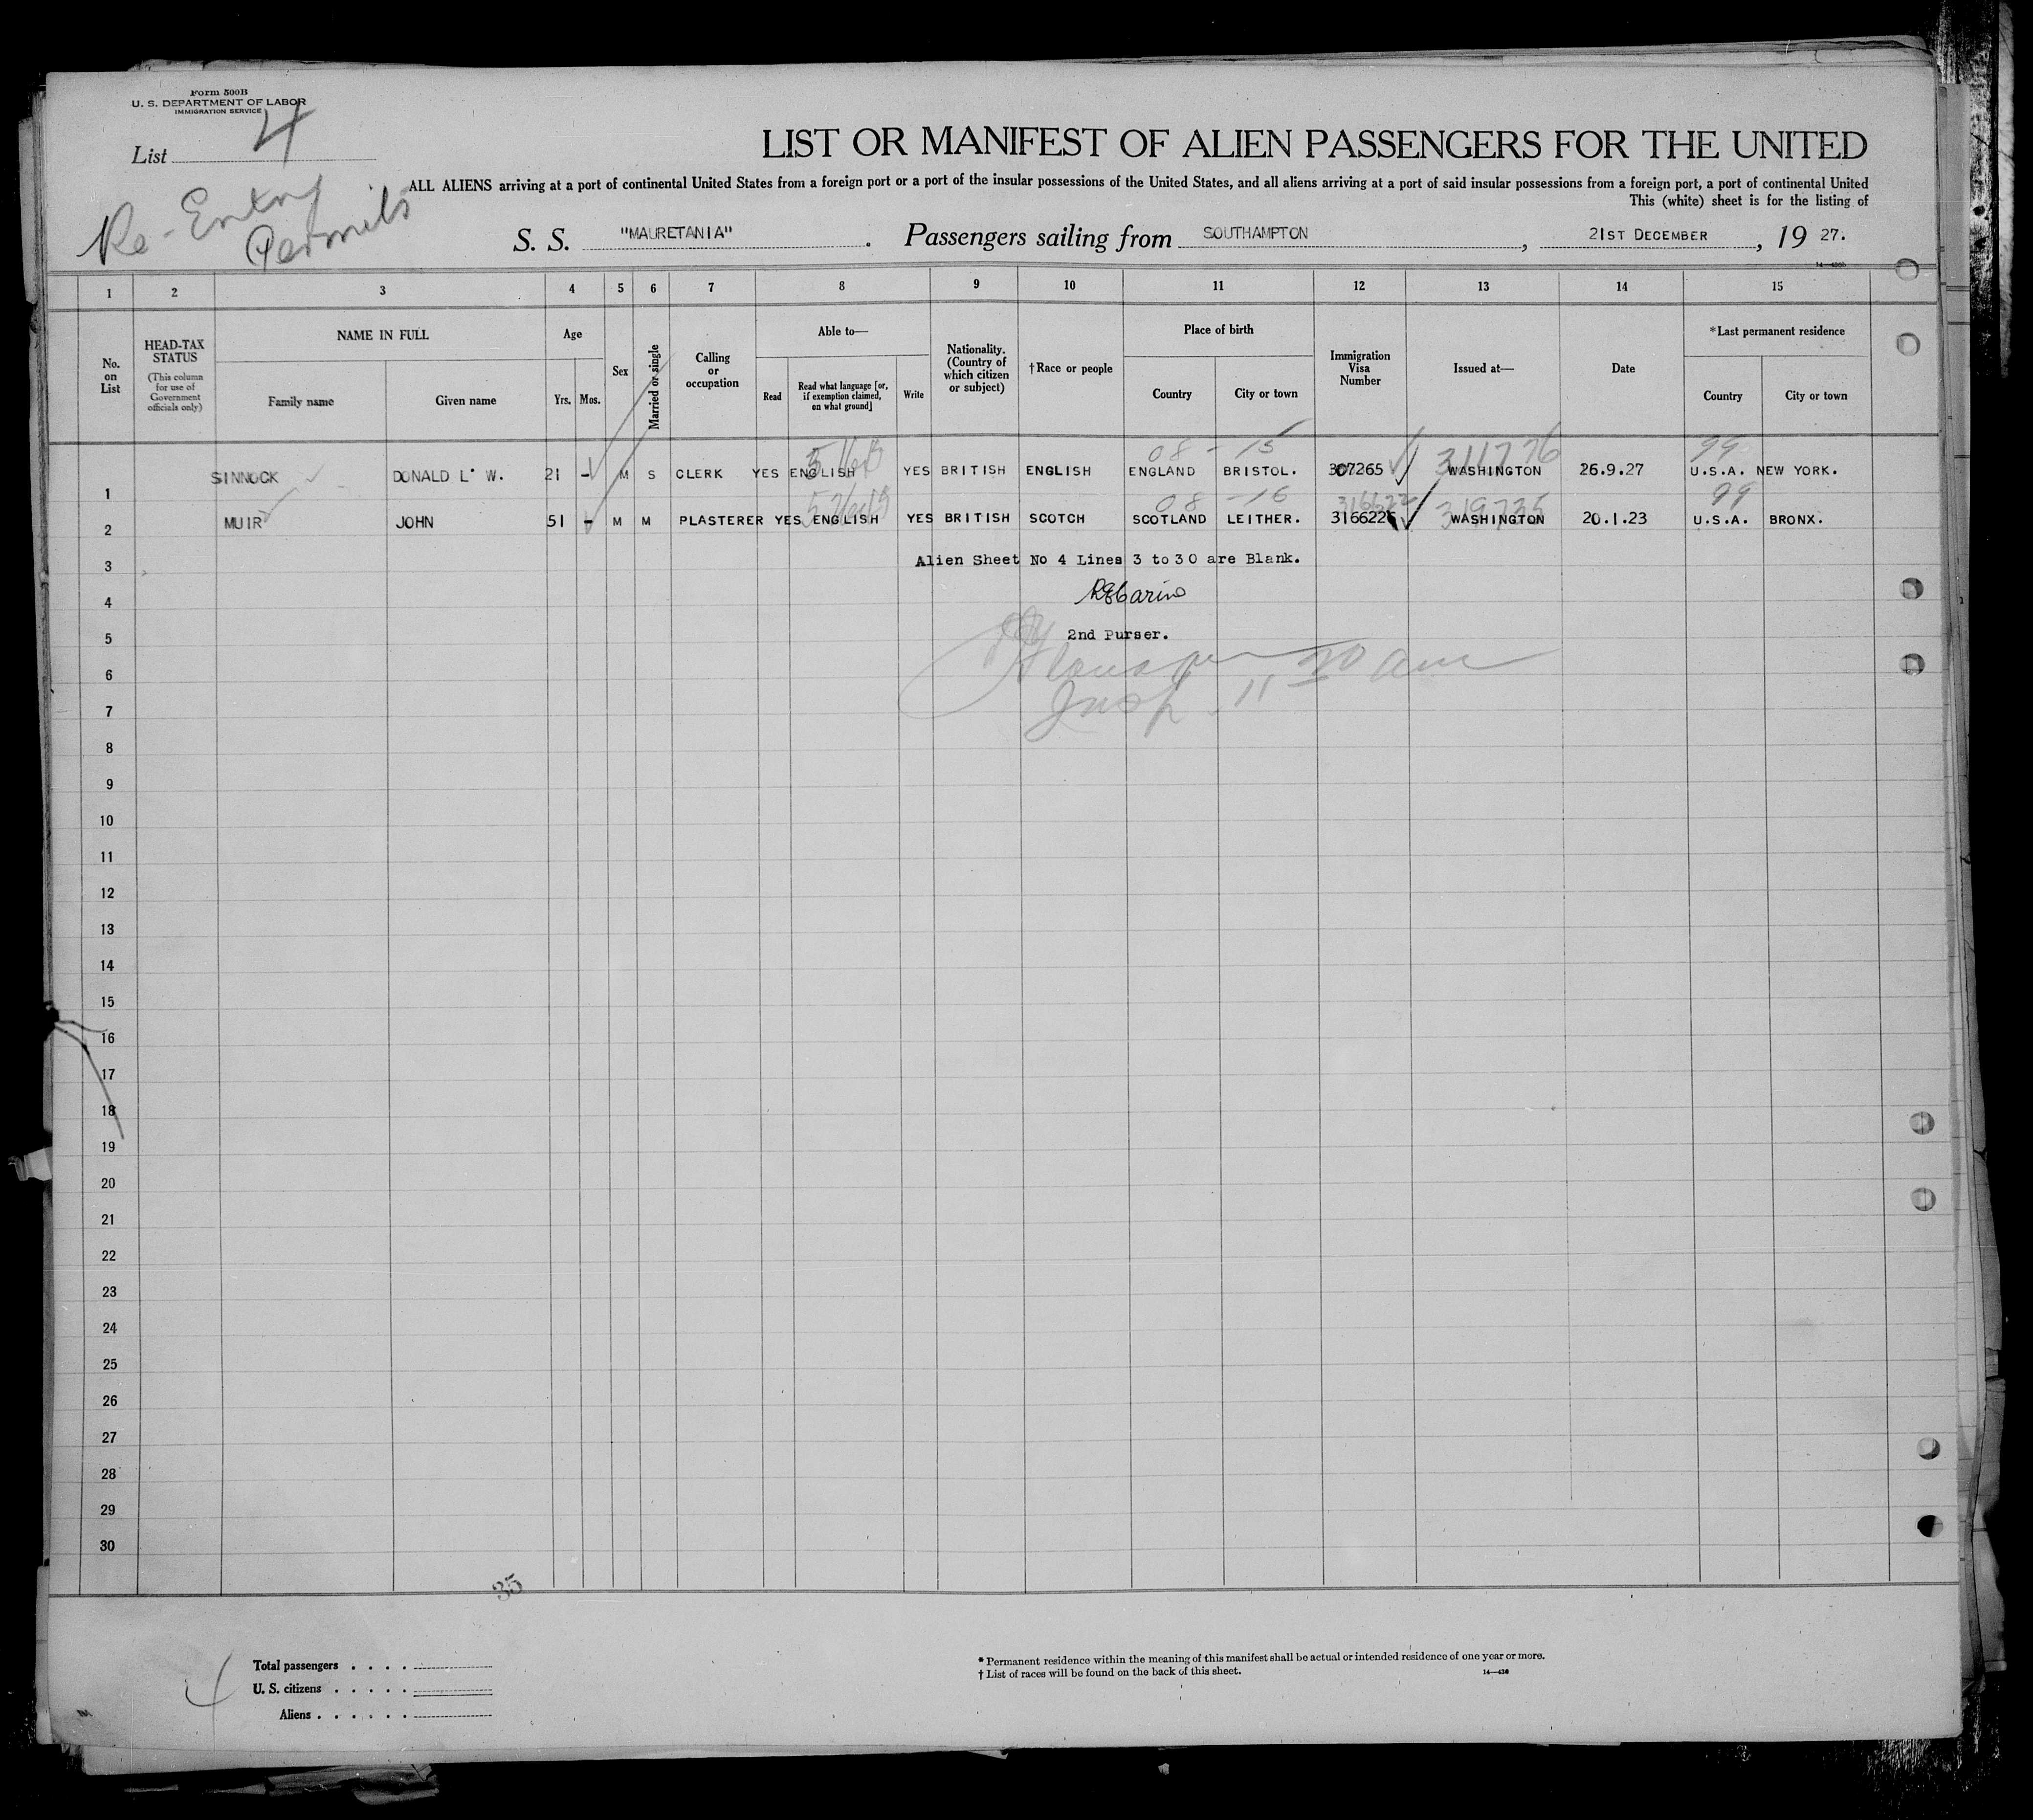 Form 500B
U. S. DEPARTMENT OF LABOR
IMMIGRATION SERVICE
List 4
Re-Entry Permits
LIST OR MANIFEST OF ALIEN PASSENGERS FOR THE UNITED
ALL ALIENS arriving at a port of continental United States from a foreign port or a port of the insular possessions of the United States, and all aliens arriving at a port of said insular possessions from a foreign port, a port of continental United
This (white) sheet is for the listing of
S. S. "MAURETANIA". Passengers sailing from SOUTHAMPTON, 21ST DECEMBER, 1927.
1 2 3 4 5 6 7 8 9 10 11 12 13 14 15
No. on List
HEAD-TAX STATUS
(This column for use of Government officials only)
NAME IN FULL
Family name Given name
Age
Yrs. Mos.
Sex
Married or single
Calling or occupation
Able to—
Read Read what language [or, if exemption claimed, on what ground] Write
Nationality. (Country of which citizen or subject)
†Race or people
Place of birth
Country City or town
Immigration Visa Number
Issued at—
Date
*Last permanent residence
Country City or town
08 - 15 311776 99
1 SINNOCK DONALD L. W. 21 - M S CLERK YES ENGLISH YES BRITISH ENGLISH ENGLAND BRISTOL. 307265 WASHINGTON 26.9.27 U.S.A. NEW YORK.
08 - 16 319735 99
2 MUIR JOHN 51 - M M PLASTERER YES ENGLISH YES BRITISH SCOTCH SCOTLAND LEITHER. 316622 WASHINGTON 20.1.23 U.S.A. BRONX.
3 Alien Sheet No 4 Lines 3 to 30 are Blank.
4
5 2nd Purser.
6
7 Insp. 11 30 am
8
9
10
11
12
13
14
15
16
17
18
19
20
21
22
23
24
25
26
27
28
29
30
35
4
Total passengers . . . .
U. S. citizens . . . . .
Aliens . . . . . .
* Permanent residence within the meaning of this manifest shall be actual or intended residence of one year or more.
† List of races will be found on the back of this sheet.
14—430